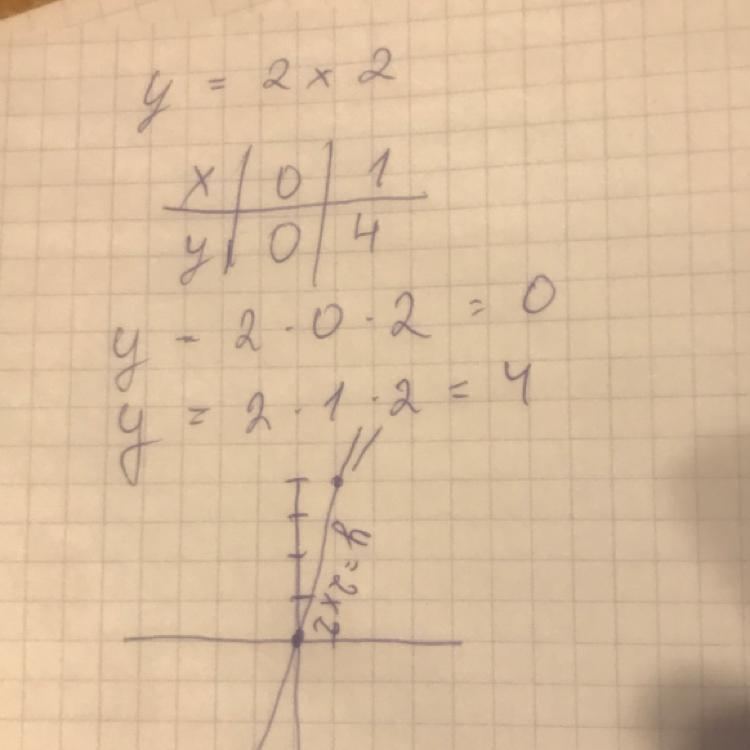 y = 2 x 2
x | 0 | 1
y | 0 | 4
y - 2 · 0 · 2 = 0
y = 2 · 1 · 2 = 4
y = 2x2